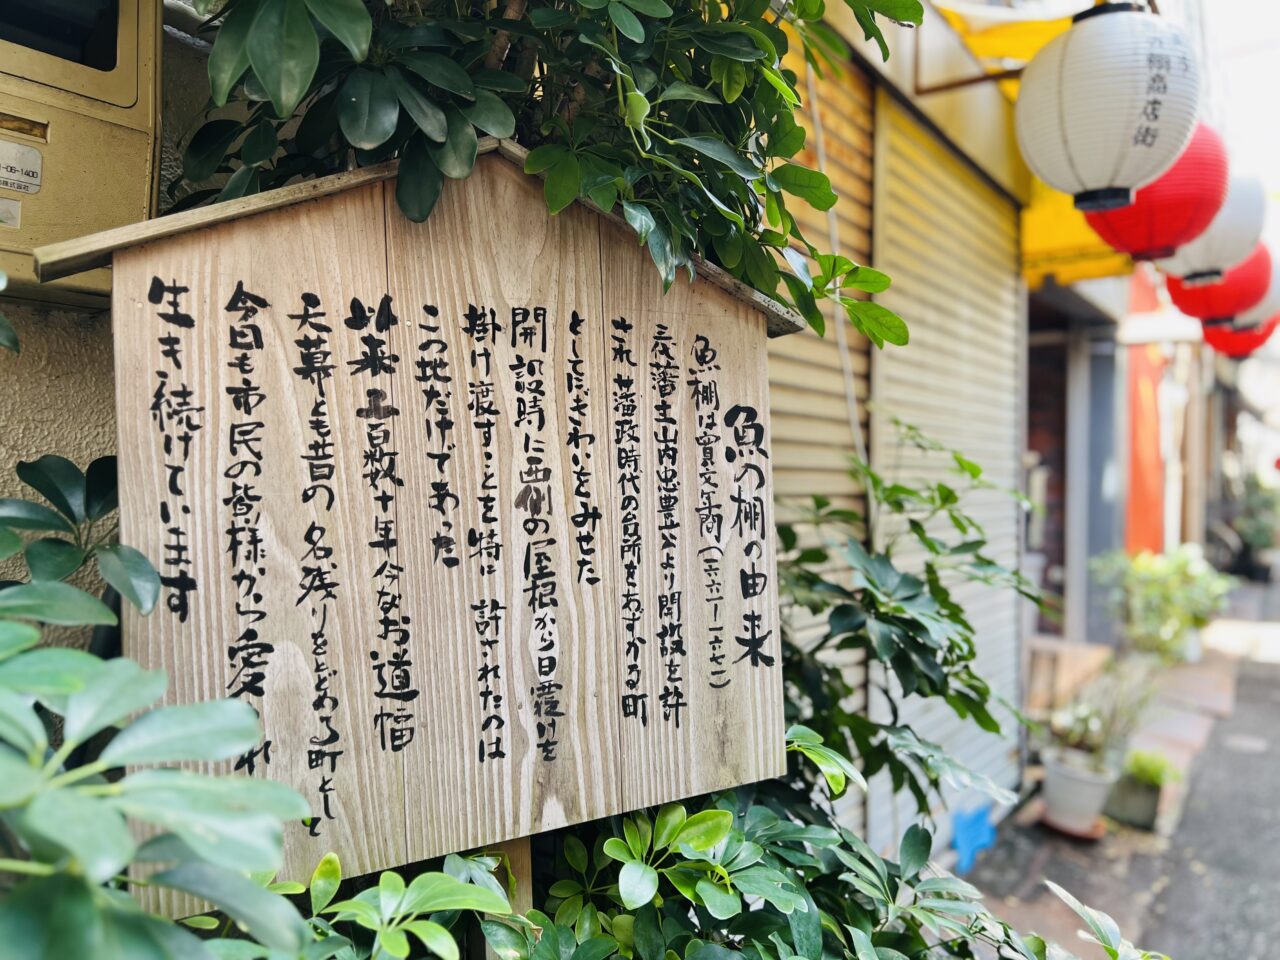 魚の棚の由来
魚棚は寛文年間(一六六一ー一六七一)
三代藩主山内忠豊公より開設を許
され 藩政時代の台所をあずかる町
としてにぎわいをみせた
開設時に西側の屋根から日覆けを
掛け渡すことを特に 許されたのは
この地だけであった
以来三百数十年今なお道幅
天幕とも昔の 名残りをとどめる町として
今日も市民の皆様から愛され
生き続けています
棚商店街
1-06-1400
株式会社